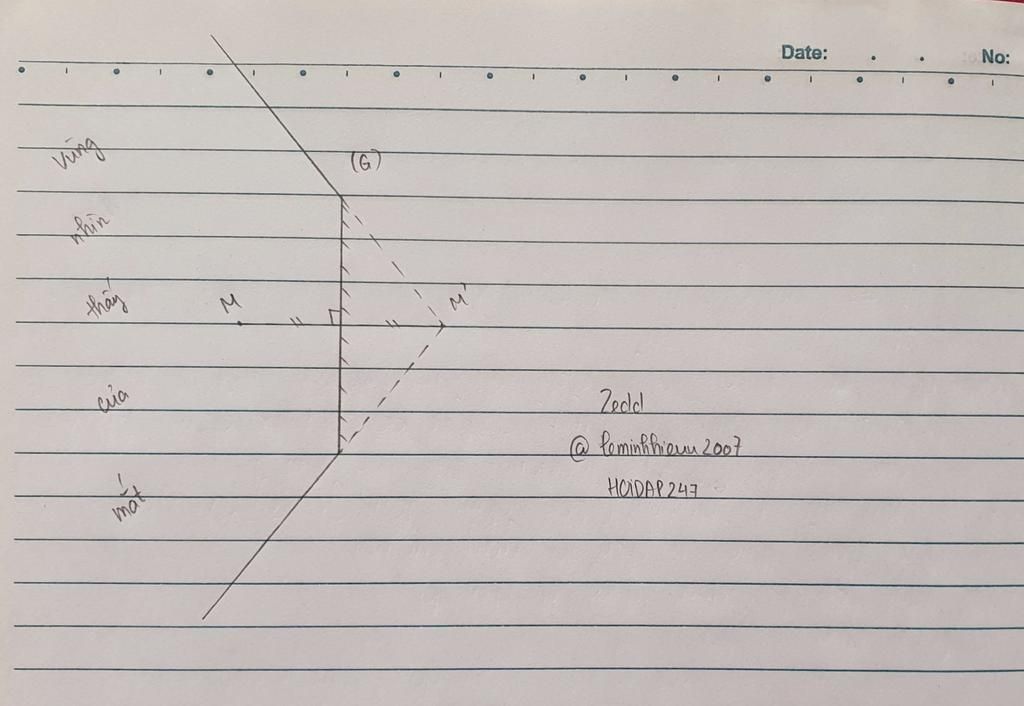 Date: . . No:
vùng
(G)
nhìn
thấy
M
M'
của
Zedd
@ leminhhieuu2007
mắt
HOIDAP247